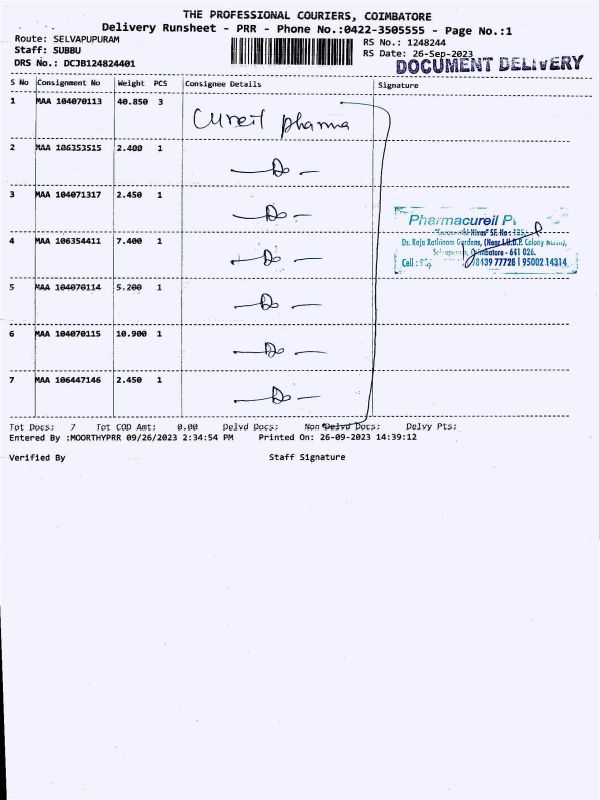 THE PROFESSIONAL COURIERS, COIMBATORE
Delivery Runsheet - PRR - Phone No.:0422-3505555 - Page No.:1
Route: SELVAPUPURAM
RS No.: 1248244
Staff: SUBBU
RS Date: 26-Sep-2023
DRS No.: DCJB124824401
DOCUMENT DELIVERY
S No Consignment No Weight PCS Consignee Details Signature
1 MAA 104070113 40.850 3 Cureil pharma
2 MAA 106353515 2.400 1 — Do —
3 MAA 104071317 2.450 1 — Do —
4 MAA 106354411 7.400 1 — Do —
5 MAA 104070114 5.200 1 — Do —
6 MAA 104070115 10.900 1 — Do —
7 MAA 106447146 2.450 1 — Do —
Pharmacureil
Nivas" SF. No :
Dr. Raja Rathinam Gardens, (Near T.U.D.P. Colony
Coimbatore - 641 026.
Cell : 98439 77728 | 95002 14314
Tot Docs: 7 Tot COD Amt: 0.00 Delvd Docs: Non Delvd Docs: Delvy Pts:
Entered By :MOORTHYPRR 09/26/2023 2:34:54 PM Printed On: 26-09-2023 14:39:12
Verified By Staff Signature